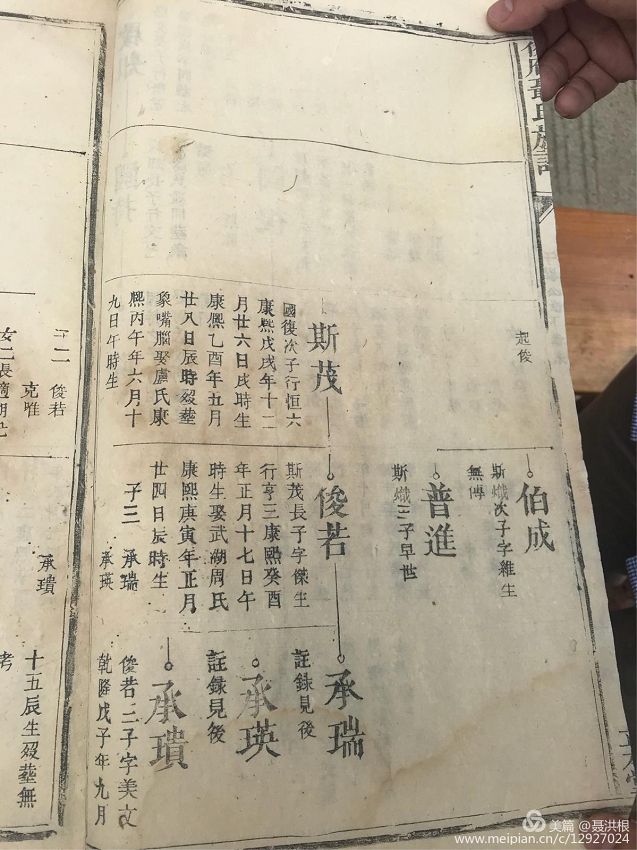 氏族譜
起俊
伯成
斯熾次子字維生
無傳
普進
斯熾三子早世
斯茂
國復次子行恒六
康熙戊戌年十二
月廿六日戌時生
康熙乙酉年五月
廿八日辰時歿塟
象嘴腦娶盧氏康
熙丙午年六月十
九日午時生
俊若
斯茂長子字傑生
行亨三康熙癸酉
年正月十七日午
時生娶武湖周氏
康熙庚寅年正月
廿四日辰時生
子三 承瑞
承瑛
承瑞
註錄見後
承瑛
註錄見後
承璝
俊若三子字美文
乾隆戊子年九月
承璝
子二 俊若
克唯
女二長適胡
十五辰生歿塟無
考
美篇 @聂洪根
www.meipian.cn/c/12927024